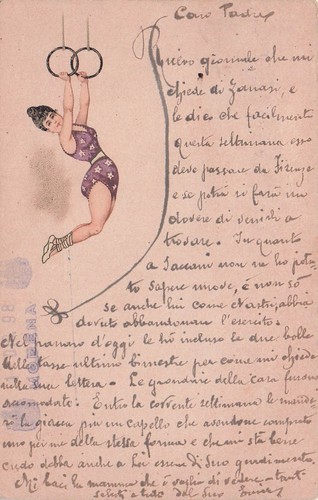 Caro Padre
Ricevo giornale che mi
chiede di Zanasi, e
le dico che facilmente
questa settimana esso
deve passare da Firenze
e se potrà si farà un
dovere di venirli a
trovare. In quanto
a Jaccani non ne ho potu-
to sapere nuove, e non so
se anche lui come Nasti, abbia
dovuto abbandonare l'esercito.
Nel panaro d'oggi le ho incluso le due bolle
delle tasse ultimo bimestre per come mi chiede
nell' lettera. Le grondaie della casa furono
accomodate. Entro la corrente settimana le mande-
rò la giacca più un cappello che avendone comprato
uno per me della stessa forma e che mi sta bene
credo debba anche a Lei essere di suo gradimento.
Mi baci la mamma che è voglio di vedere e tanti
saluti a tutti dal suo
MODENA
98